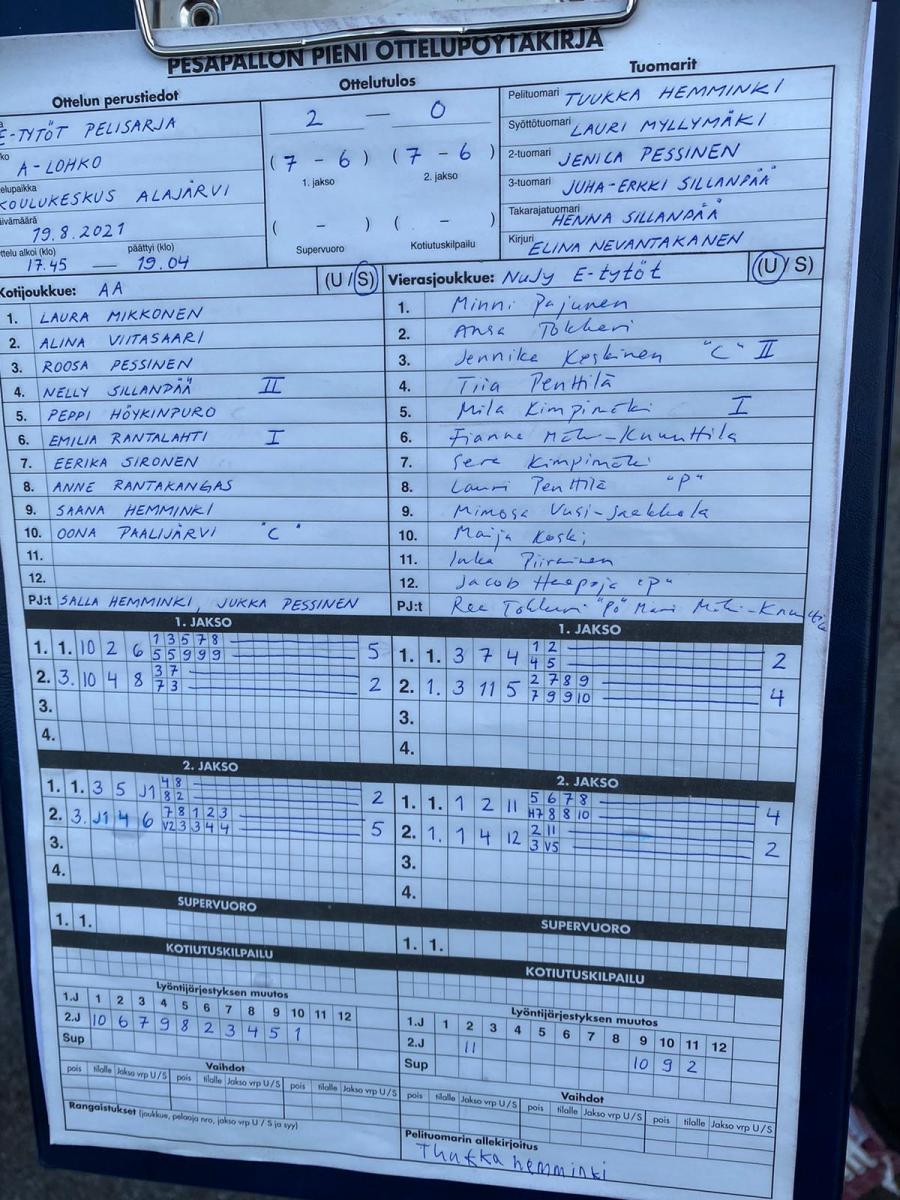 PESÄPALLON PIENI OTTELUPÖYTÄKIRJA
Ottelun perustiedot
E-TYTÖT PELISARJA
A-LOHKO
KOULUKESKUS ALAJÄRVI
19.8.2021
päättyi (klo)
17.45 — 19.04
Ottelutulos
2 — 0
(7 - 6) (7 - 6)
1. jakso 2. jakso
( - ) ( - )
Supervuoro Kotiutuskilpailu
Tuomarit
Pelituomari TUUKKA HEMMINKI
Syöttötuomari LAURI MYLLYMÄKI
2-tuomari JENICA PESSINEN
3-tuomari JUHA-ERKKI SILLANPÄÄ
Takarajatuomari HENNA SILLANPÄÄ
Kirjuri ELINA NEVANTAKANEN
Kotijoukkue: AA (U / S)
1. LAURA MIKKONEN
2. ALINA VIITASAARI
3. ROOSA PESSINEN
4. NELLY SILLANPÄÄ II
5. PEPPI HÖYKINPURO
6. EMILIA RANTALAHTI I
7. EERIKA SIRONEN
8. ANNE RANTAKANGAS
9. SAANA HEMMINKI
10. OONA PAALIJÄRVI "C"
11.
12.
PJ:t SALLA HEMMINKI, JUKKA PESSINEN
Vierasjoukkue: NuJy E-tytöt (U / S)
1. Minni Pajunen
2. Ansa Tokkeri
3. Jennika Keskinen "C" II
4. Tiia Penttilä
5. Mila Kimpimäki I
6. Fianna Mäki-Knuuttila
7. Sera Kimpimäki
8. Lauri Penttilä "P"
9. Mimosa Uusi-Jaakkola
10. Maija Koski
11. Inka Piirainen
12. Jacob Haapoja "P"
PJ:t Rea Tokkeri "PÖ" Mari Mäki-Knuuttila
1. JAKSO
1. 1. 10 2 6 1 3 5 7 8 5
5 5 9 9 9
2. 3. 10 4 8 3 7 2
7 3
3.
4.
1. JAKSO
1. 1. 3 7 4 1 2 2
4 5
2. 1. 3 11 5 2 7 8 9 4
7 9 9 10
3.
4.
2. JAKSO
1. 1. 3 5 J1 4 8 2
8 2
2. 3. J1 4 6 7 8 1 2 3 5
V2 3 3 4 4
3.
4.
2. JAKSO
1. 1. 1 2 11 5 6 7 8 4
H7 8 8 10
2. 1. 1 4 12 2 11 2
3 V5
3.
4.
SUPERVUORO
1. 1.
SUPERVUORO
1. 1.
KOTIUTUSKILPAILU
KOTIUTUSKILPAILU
Lyöntijärjestyksen muutos
1.J 1 2 3 4 5 6 7 8 9 10 11 12
2.J 10 6 7 9 8 2 3 4 5 1
Sup
Lyöntijärjestyksen muutos
1.J 1 2 3 4 5 6 7 8 9 10 11 12
2.J 11 10 9 2
Sup
Vaihdot
pois tilalle Jakso vrp U / S pois tilalle Jakso vrp U / S pois tilalle Jakso vrp U / S
Rangaistukset (joukkue, pelaaja nro, jakso vrp U / S ja syy)
Vaihdot
pois tilalle Jakso vrp U / S pois tilalle Jakso vrp U / S pois tilalle Jakso vrp U / S
Pelituomarin allekirjoitus
Thukka hemminki